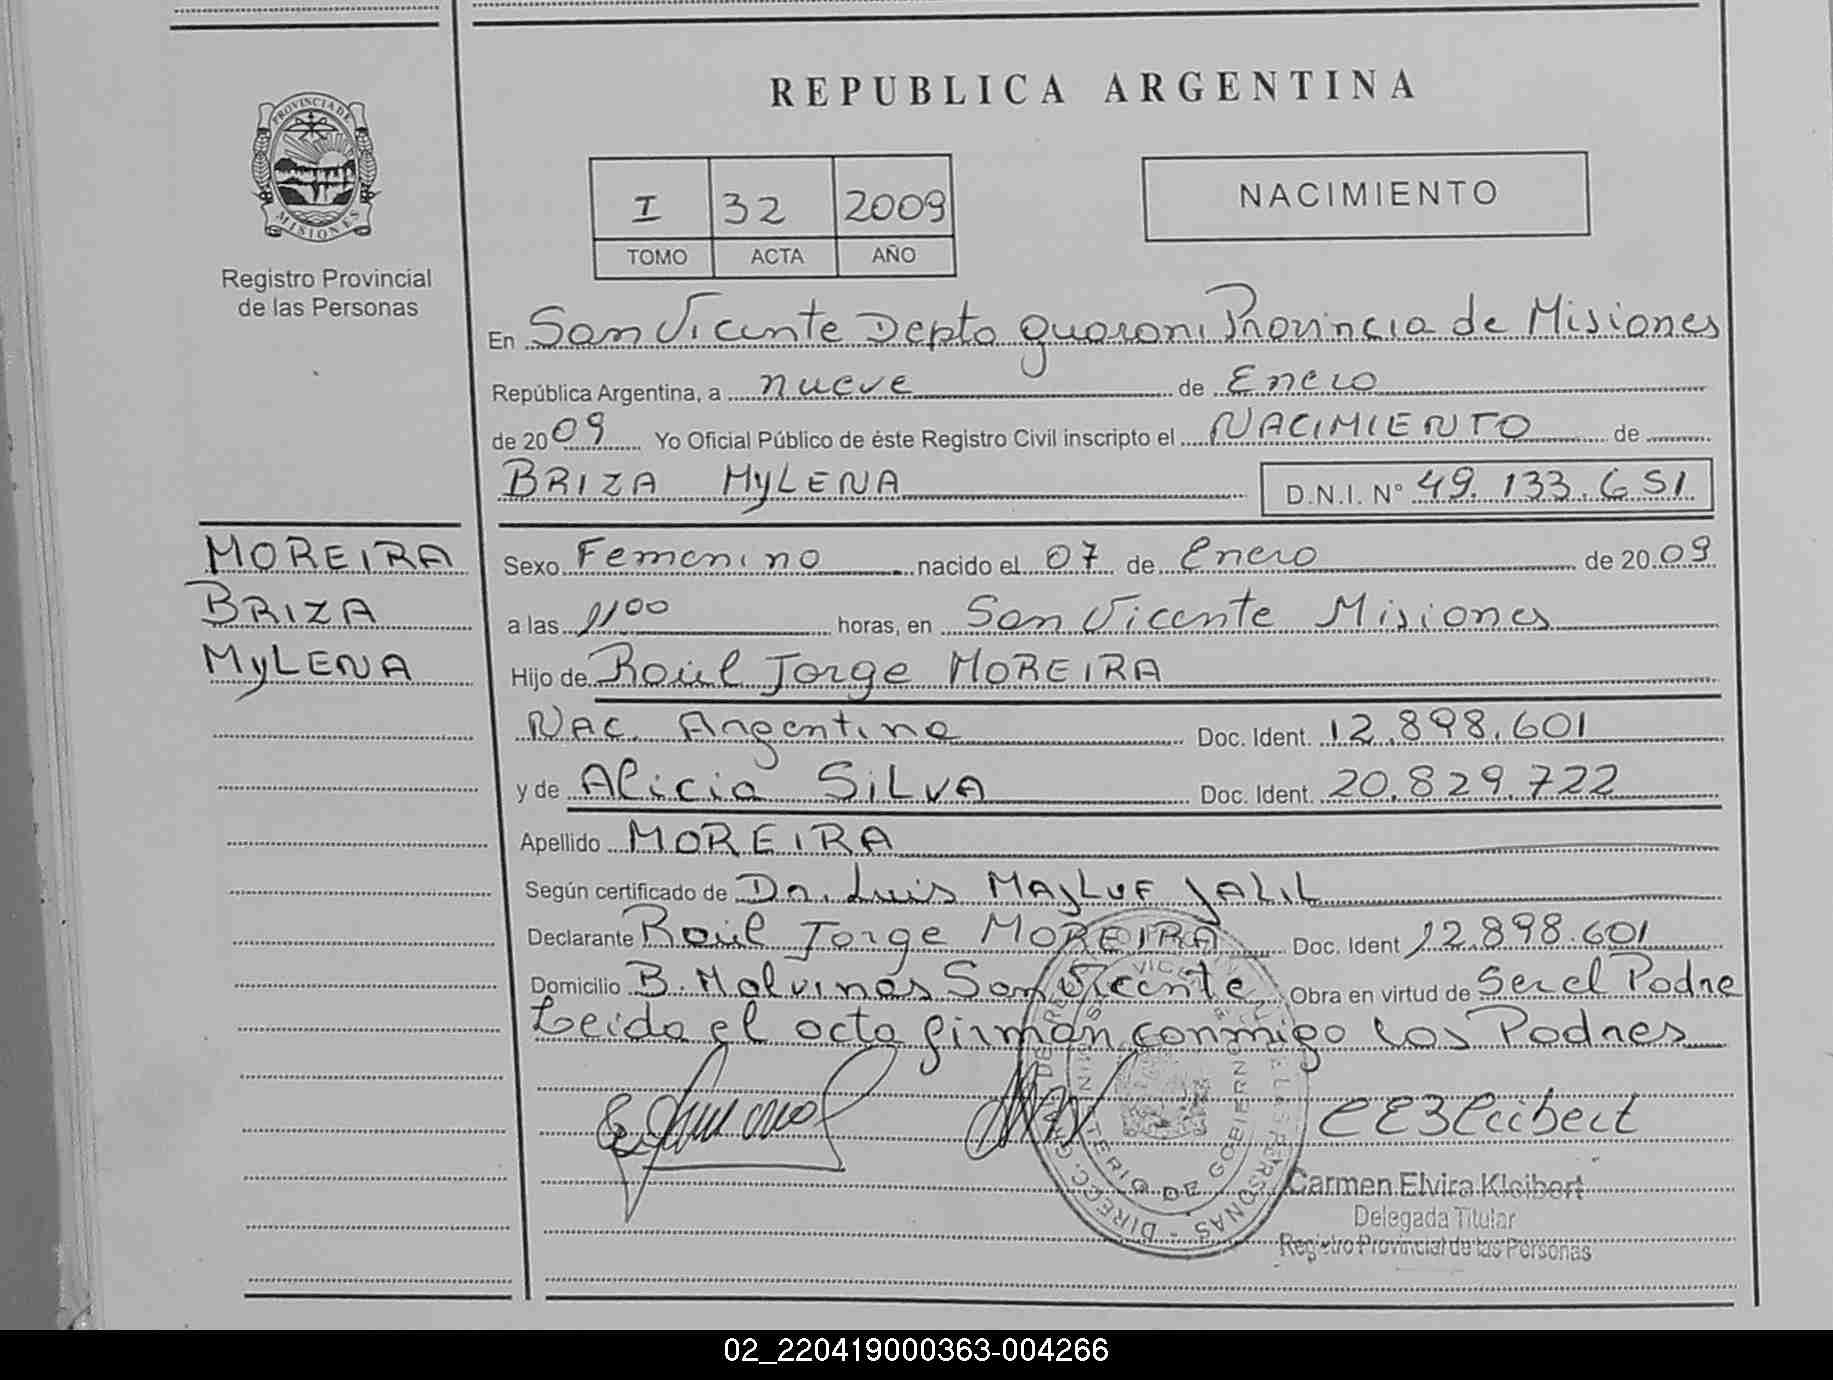 REPUBLICA ARGENTINA
PROVINCIA DE
MISIONES
Registro Provincial
de las Personas
I 32 2009
TOMO ACTA AÑO
NACIMIENTO
En San Vicente Depto guarani Provincia de Misiones
República Argentina, a nueve de Enero
de 2009 Yo Oficial Público de éste Registro Civil inscripto el NACIMIENTO de
BRIZA MyLENA D.N.I. N° 49.133.651
MOREIRA
BRIZA
MyLENA
Sexo Femenino nacido el 07 de Enero de 2009
a las 11 00 horas, en San Vicente Misiones
Hijo de Raúl Jorge MOREIRA
NAC. Argentina Doc. Ident. 12.898.601
y de Alicia SiLVA Doc. Ident. 20.829.722
Apellido MOREIRA
Según certificado de Dr. Luis MAJLUF JALIL
Declarante Raúl Jorge MOREIRA Doc. Ident 12.898.601
Domicilio B. Malvinas San Vicente Obra en virtud de Ser el Padre
Leida el acta firman conmigo los Padres
MINISTERIO DE GOBIERNO
Carmen Elvira Kleibert
Delegada Titular
Registro Provincial de las Personas
02_220419000363-004266